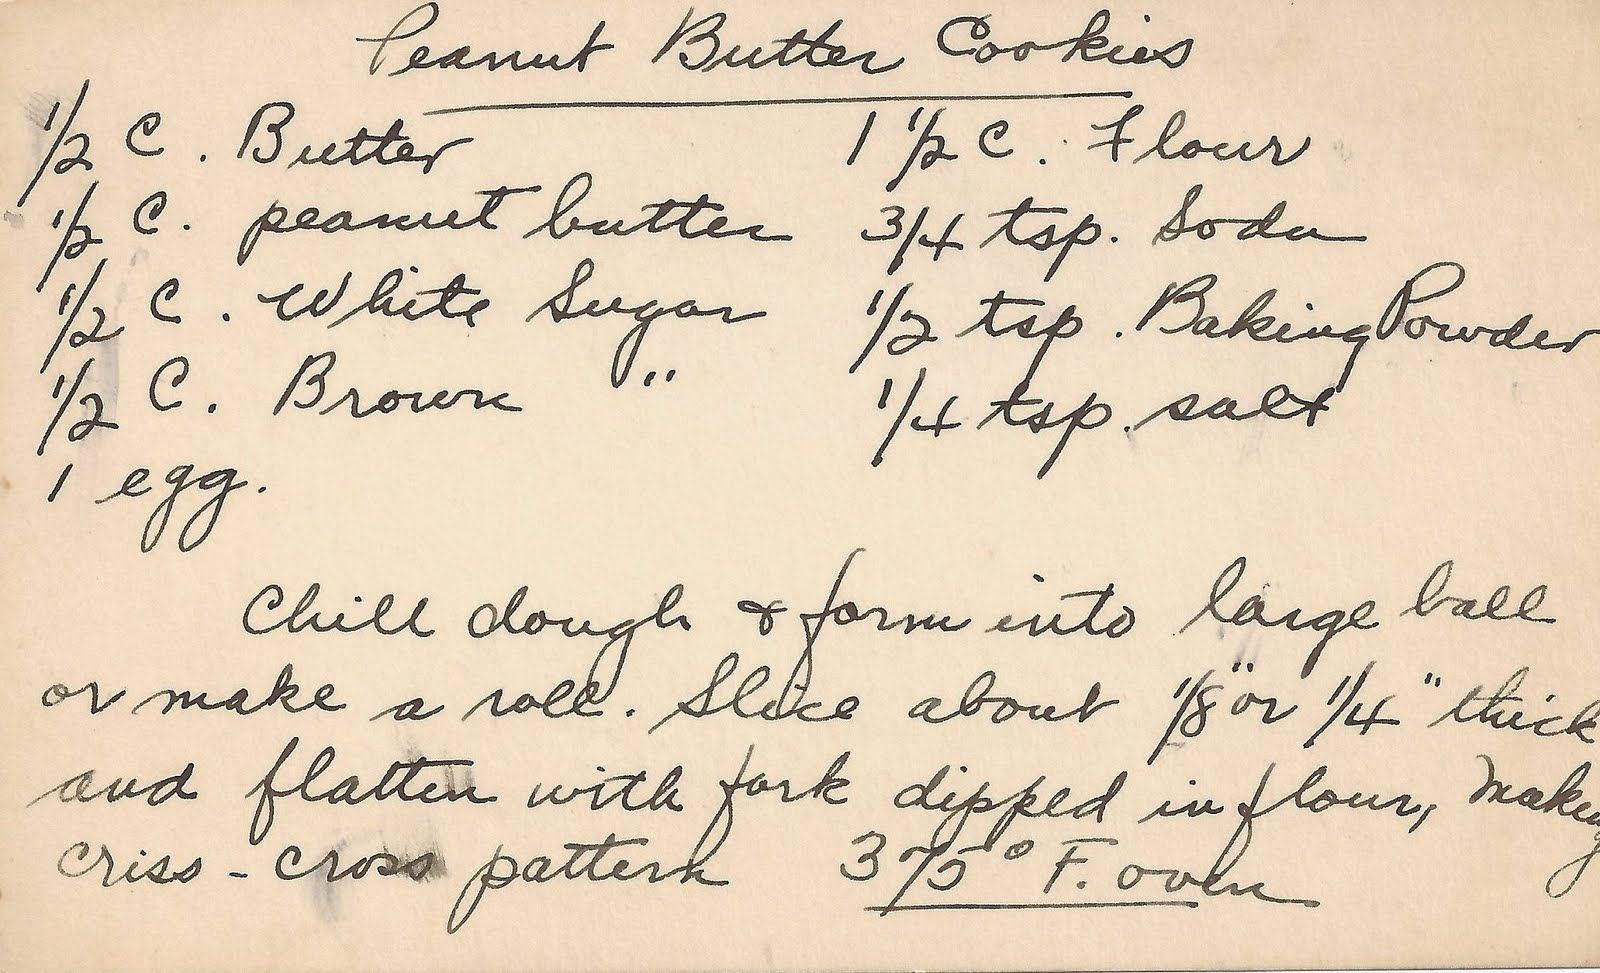 Peanut Butter Cookies
1/2 C. Butter
1/2 C. peanut butter
1/2 C. White Sugar
1/2 C. Brown "
1 egg.
1 1/2 C. Flour
3/4 tsp. Soda
1/2 tsp. Baking Powder
1/4 tsp. salt
Chill dough & form into large ball
or make a roll. Slice about 1/8" or 1/4" thick
and flatten with fork dipped in flour, making
criss-cross pattern 375° F. oven